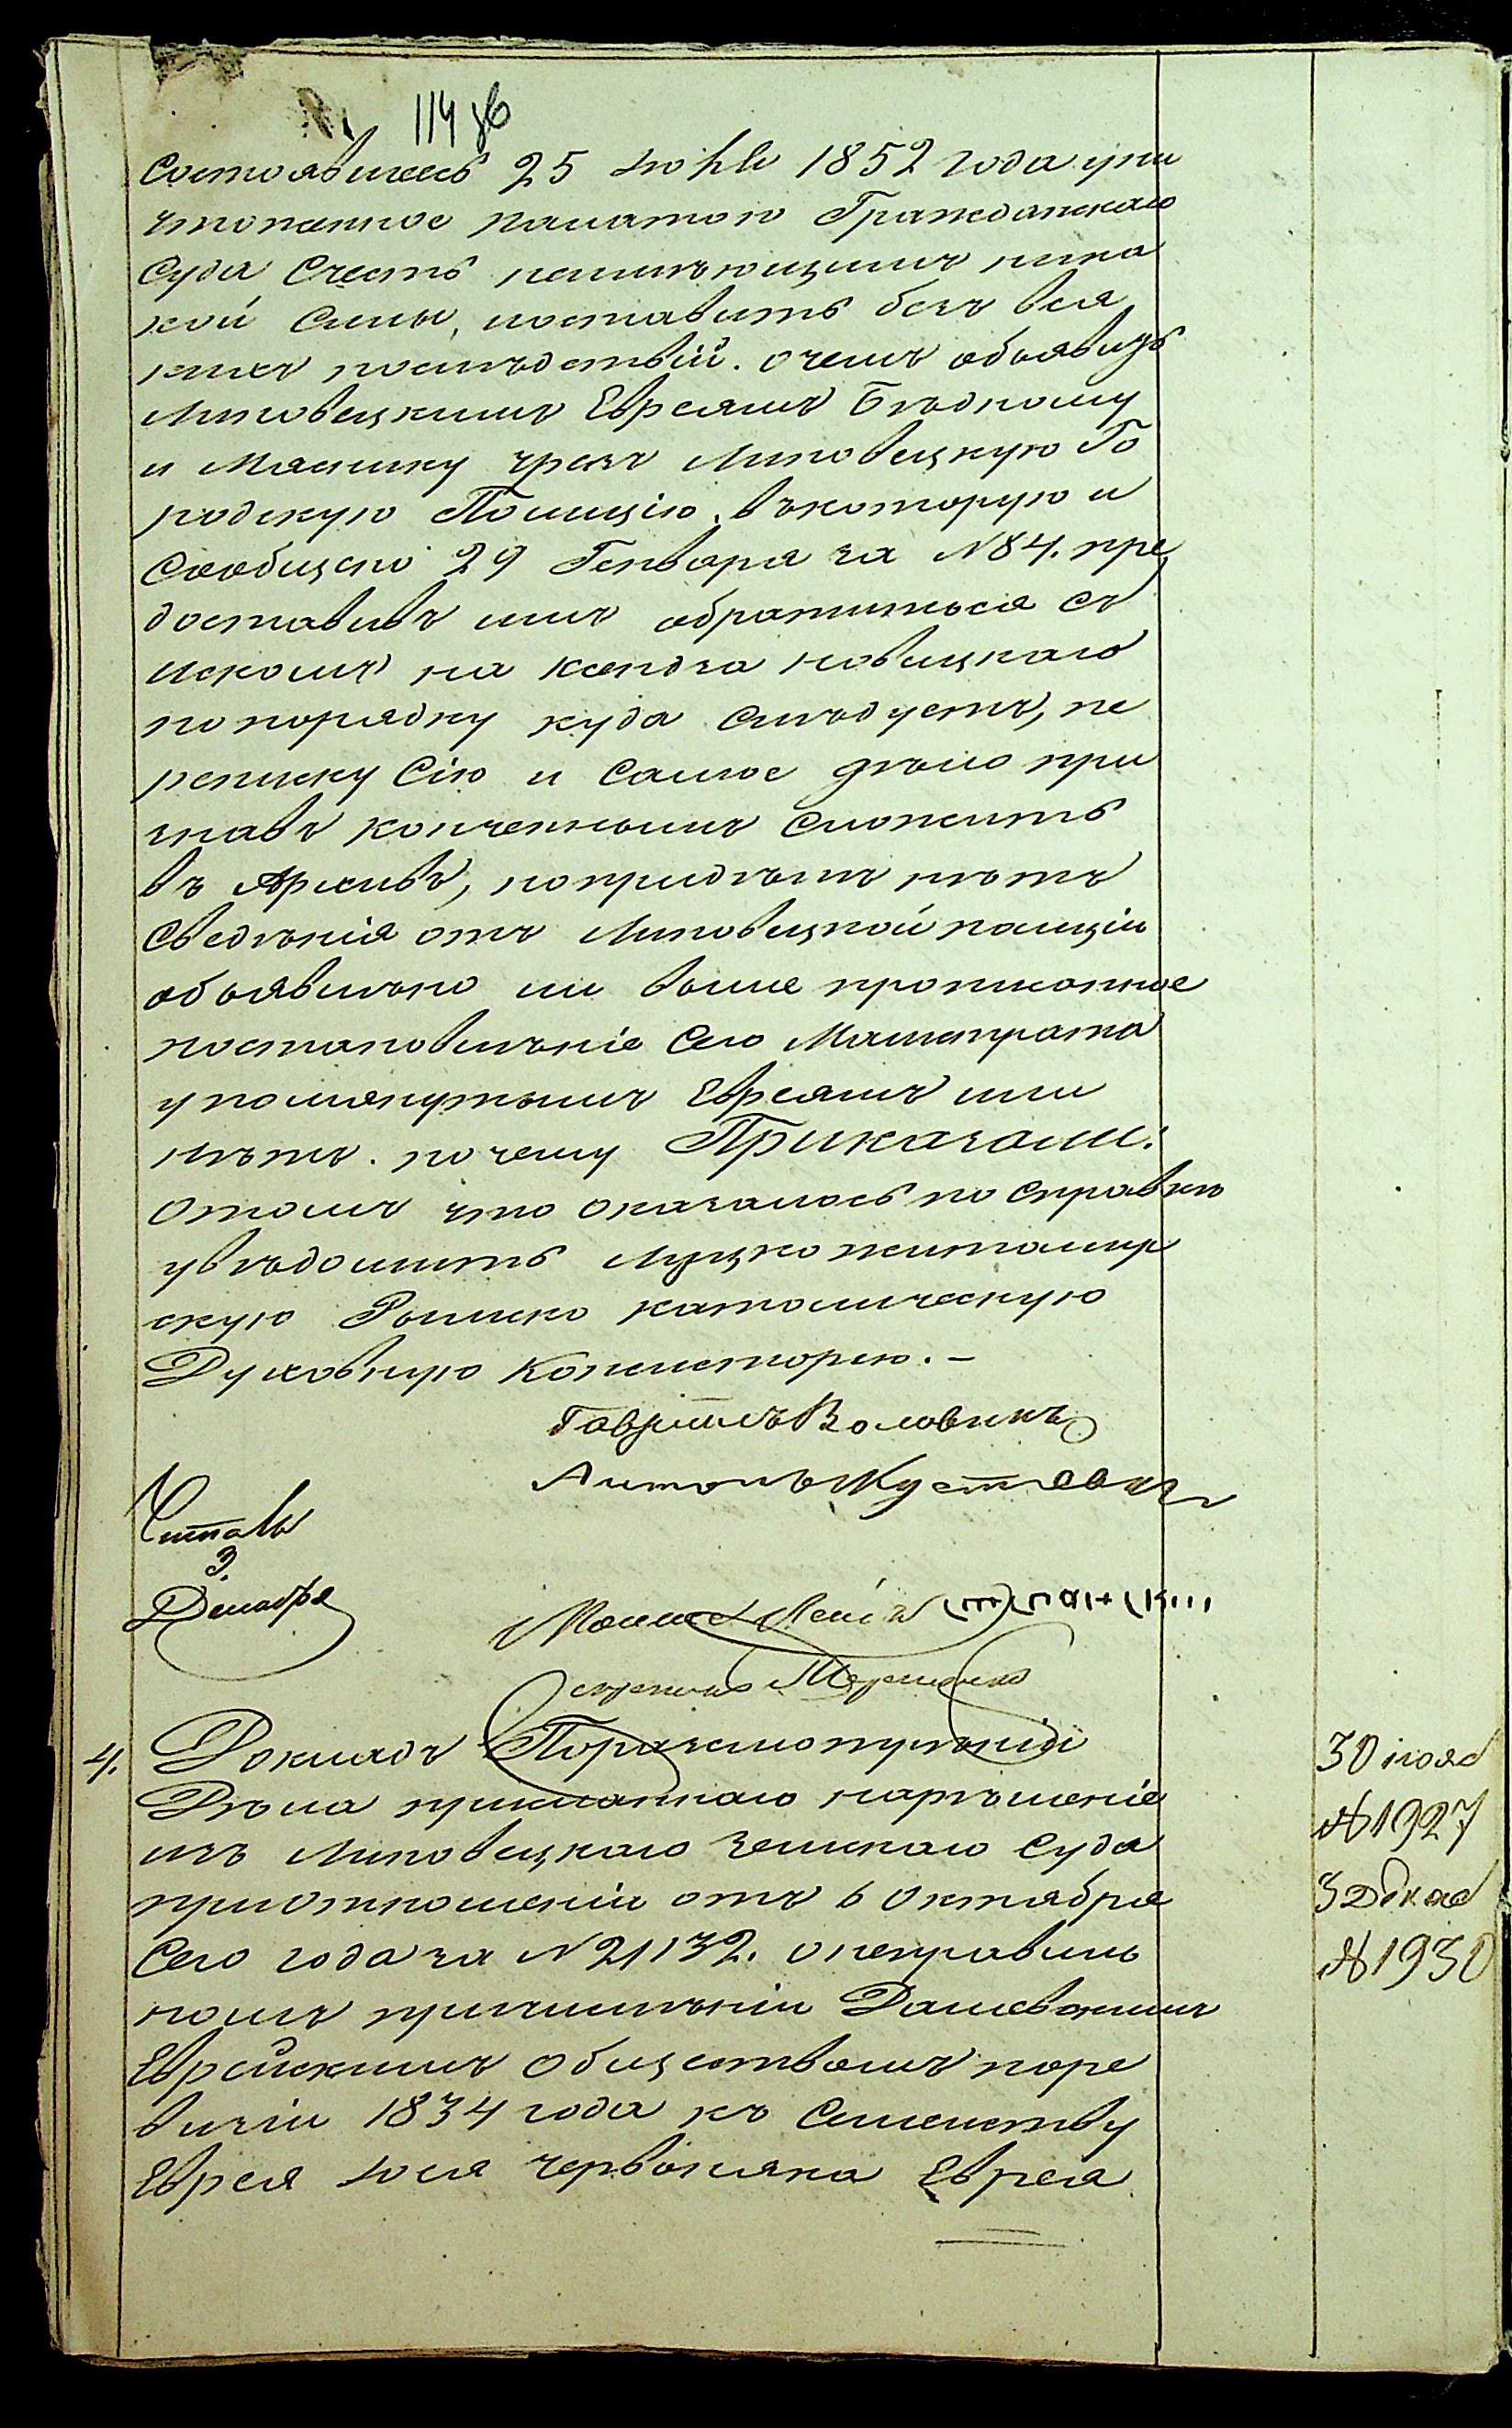 114 об
состоявшееся 25 Июня 1852 года уни
чтоженное палатою Гражданскаго
Суда Счесть неимѣющимъ ника
кой Силы, оставить безъ вся
кихъ послѣдствій. о чемъ объявить
Липовецкимъ Евреямъ Бѣдному
и Маснику чрезъ Липовецкую Го
родскую Полицію, въ которую и
Сообщено 29 Генваря за №84. пре
доставивъ имъ обратиться съ
искомъ на ксендза новицкаго
по порядку куда слѣдуетъ, пе
реписку Сію и Самое дѣло при
знавъ конченнымъ Сложить
въ Архивъ, но при дѣлѣ нѣтъ
Сведѣнія отъ Липовецкой полиціи
объявлено ли выше прописанное
постановленіе Сего Магистрата
упомянутымъ Евреямъ или
нѣтъ. почему Приказали:
О томъ что оказалось по Справкѣ
увѣдомить Луцко житомир
скую Римско католическую
Духовную Консисторію.-
Гавріилъ Воловикъ
Антонъ
Читалъ
3.
Декабря
Секретарь
4.
Докладъ По разсмотрѣніи
Дѣла присланнаго на рѣшеніе
изъ Липовецкаго земскаго Суда
при отношеніи отъ 6 октября
Сего года за №21132. о неправиль
номъ причисленіи Дашевскимъ
Еврейскимъ обществомъ по ре
визіи 1834 года къ Семейству
Еврея Іося червоняка Еврея
30 нояб
№1927
3 Декаб
№1930